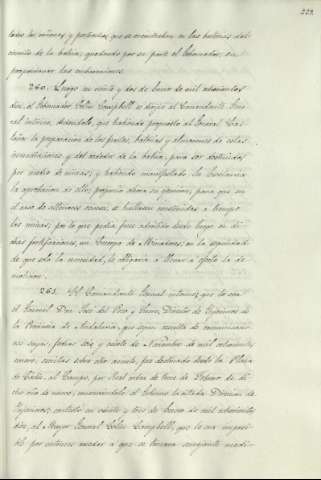 222.
todos los cañones y pertrechos que se encontraban en las baterias del
circuito de la bahia; quedando por su parte el Gobernador, en
proporcionar las embarcaciones.
260. Luego en veinte y dos de Enero de mil ochocientos
diez, el Gobernador Colin Campbell se dirigio al Comandante Gene-
ral interino, diciendole, que habiendo propuesto al General Cas-
taños la preparacion de los fuertes, baterias y almacenes de estas
inmediaciones y del rededor de la bahia, para ser destruidos
por medio de minas; y habiendo manifestado Su Excelencia
la aprobacion de ello; proponia ahora su opinion, para que en
el caso de ulteriores reveses, se hallasen construidas a tiempo
las minas; por lo que pedia fuese admitido desde luego en di-
chas fortificaciones, un Cuerpo de Minadores, en la seguridad
de que solo la necesidad, le obligaria a llevar a efecto la de-
molicion.
261. El Comandante General interino, que lo era
el General Don José del Pozo y Sucre, Director de Ingenieros de
la Provincia de Andalucia, que segun resulta de comunicacio-
nes suyas, fechas diez y siete de Noviembre de mil ochocientos
nueve, escritas sobre otro asunto, fue destinado desde la Plaza
de Cadiz, al Campo, por Real orden de trece de Febrero de di-
cho año de nueve, encomendandole al interino la citada Direccion de
Ingenieros; contestó en veinte y tres de Enero de mil ochocientos
diez, al Mayor General Colin Campbell, que le era imposi-
ble por entonces acceder a que se tomara semejante medi-